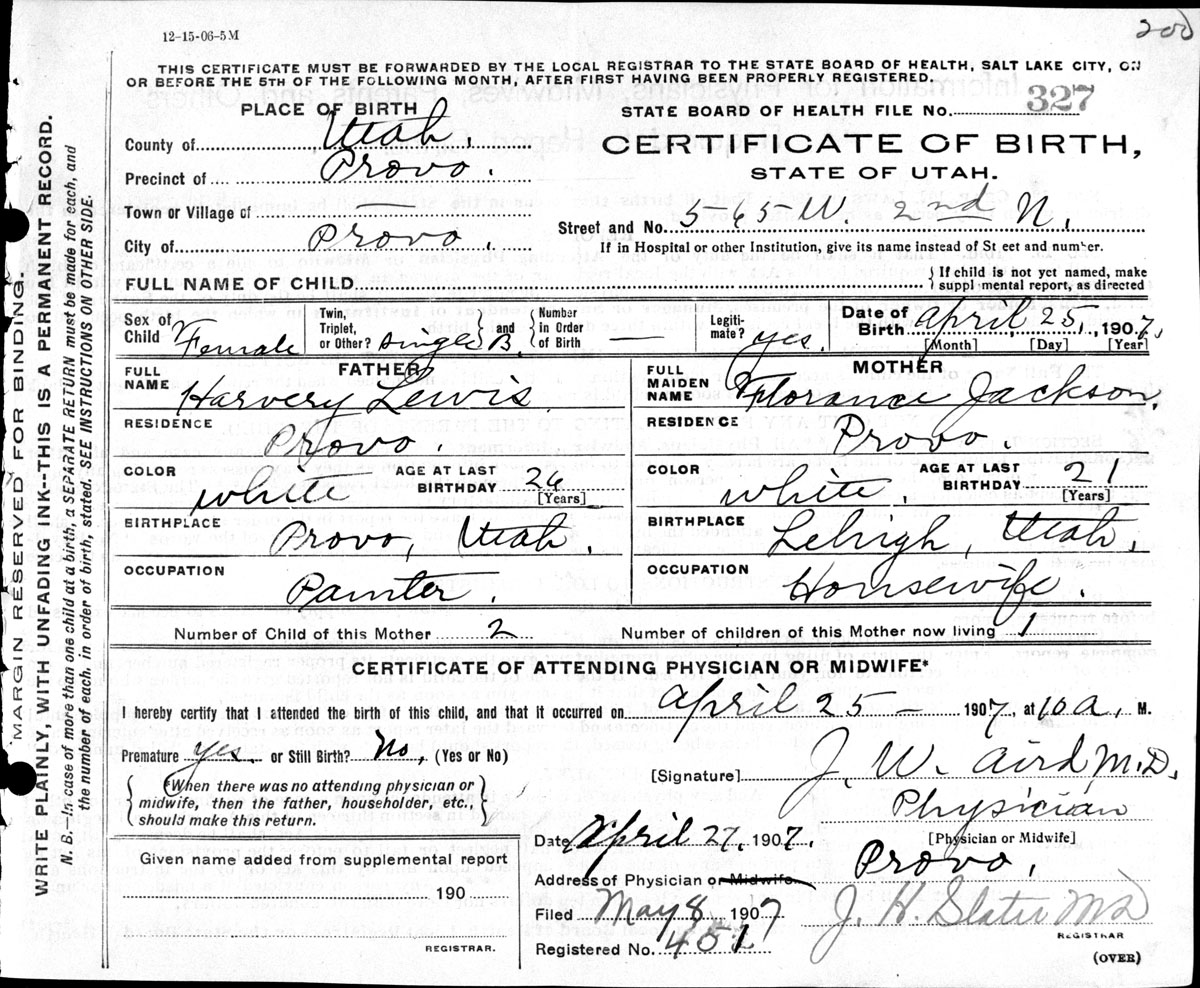 12-15-06-5M
200
THIS CERTIFICATE MUST BE FORWARDED BY THE LOCAL REGISTRAR TO THE STATE BOARD OF HEALTH, SALT LAKE CITY, ON
OR BEFORE THE 5TH OF THE FOLLOWING MONTH, AFTER FIRST HAVING BEEN PROPERLY REGISTERED.
PLACE OF BIRTH
STATE BOARD OF HEALTH FILE No. 327
County of Utah,
CERTIFICATE OF BIRTH,
Precinct of Provo.
STATE OF UTAH.
Town or Village of —
Street and No. 565 W. 2nd N.
City of Provo.
If in Hospital or other Institution, give its name instead of St eet and number.
FULL NAME OF CHILD
{ If child is not yet named, make
suppl mental report, as directed
Sex of Child Female
Twin, Triplet, or Other? single B. } and { Number in Order of Birth —
Legiti- mate? yes.
Date of Birth April 25, 1907.
[Month] [Day] [Year]
FATHER
FULL NAME Harvery Lewis.
RESIDENCE Provo.
COLOR white
AGE AT LAST BIRTHDAY 26
[Years]
BIRTHPLACE Provo, Utah.
OCCUPATION Painter.
MOTHER
FULL MAIDEN NAME Florance Jackson.
RESIDENCE Provo.
COLOR white,
AGE AT LAST BIRTHDAY 21
[Years]
BIRTHPLACE Lehigh, Utah.
OCCUPATION Housewife.
Number of Child of this Mother 2 Number of children of this Mother now living 1
CERTIFICATE OF ATTENDING PHYSICIAN OR MIDWIFE*
I hereby certify that I attended the birth of this child, and that it occurred on April 25 — 1907, at 10 a, M.
Premature yes. or Still Birth? No, (Yes or No)
[Signature] J. W. Aird M.D.
{ *When there was no attending physician or
midwife, then the father, householder, etc.,
should make this return. }
Physician
[Physician or Midwife]
Date April 27, 1907.
Given name added from supplemental report
190
REGISTRAR.
Address of Physician or Midwife. Provo,
Filed May 8 1907
J. H. Slater MD
REGISTRAR
Registered No. 451
(OVER)
MARGIN RESERVED FOR BINDING.
WRITE PLAINLY, WITH UNFADING INK--THIS IS A PERMANENT RECORD.
N. B.—In case of more than one child at a birth, a SEPARATE RETURN must be made for each, and
the number of each, in order of birth, stated. SEE INSTRUCTIONS ON OTHER SIDE.